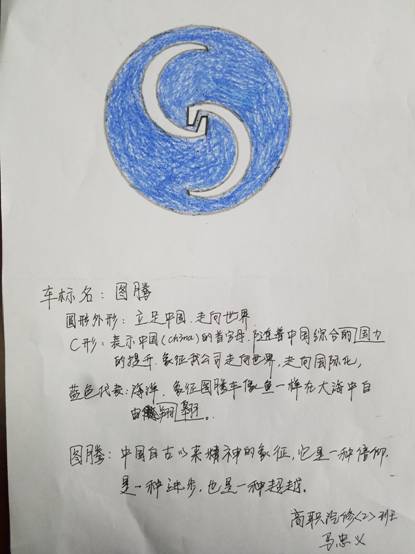 车标名：图腾
圆形外形：立足中国.走向世界
C形：表示中国(China)的首字母,随着中国综合的国力
的提升.象征我公司走向世界.走向国际化,
蓝色代表:海洋.象征图腾车像鱼一样在大海中自
由翱翔。
图腾：中国自古以来精神的象征,它是一种信仰.
是一种进步.也是一种超越.
高职汽修<2>班
马忠义